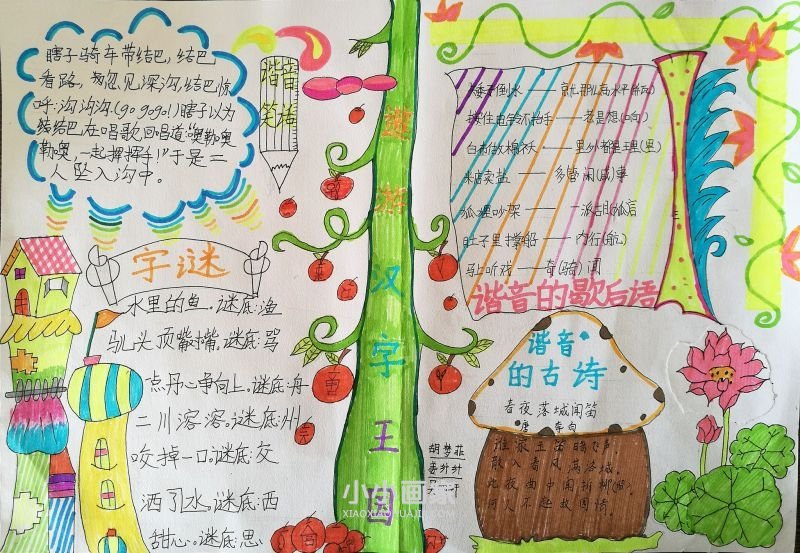 瞎子骑车带结巴,结巴
看路,忽见深沟,结巴惊
呼:沟沟沟(go go go!)瞎子以为
结巴在唱歌,回唱道:"奥勒奥
勒奥,一起挥挥手!"于是二
人坠入沟中。
谐音
笑话
字谜
水里的鱼。谜底:渔
马儿头顶戴嘴。谜底:骂
一点丹心争向上。谜底:丹
二川溶溶。谜底:州
咬掉一口。谜底:交
洒了水。谜底:西
甜心。谜底:思
遨游汉字王国
——就那么高水平
——里外都是理(里)
——多管闲(咸)事
狐狸吵架——一派胡(狐)言
肚子里撑船——内行(航)
马上听戏——奇(骑)闻
谐音的歇后语
谐音
的古诗
春夜洛城闻笛
唐 李白
谁家玉笛暗飞声
散入春风满洛城。
此夜曲中闻折柳(留)
何人不起故园情。
胡梦菲
小小画家
XIAOXIAOHUAJIA.COM